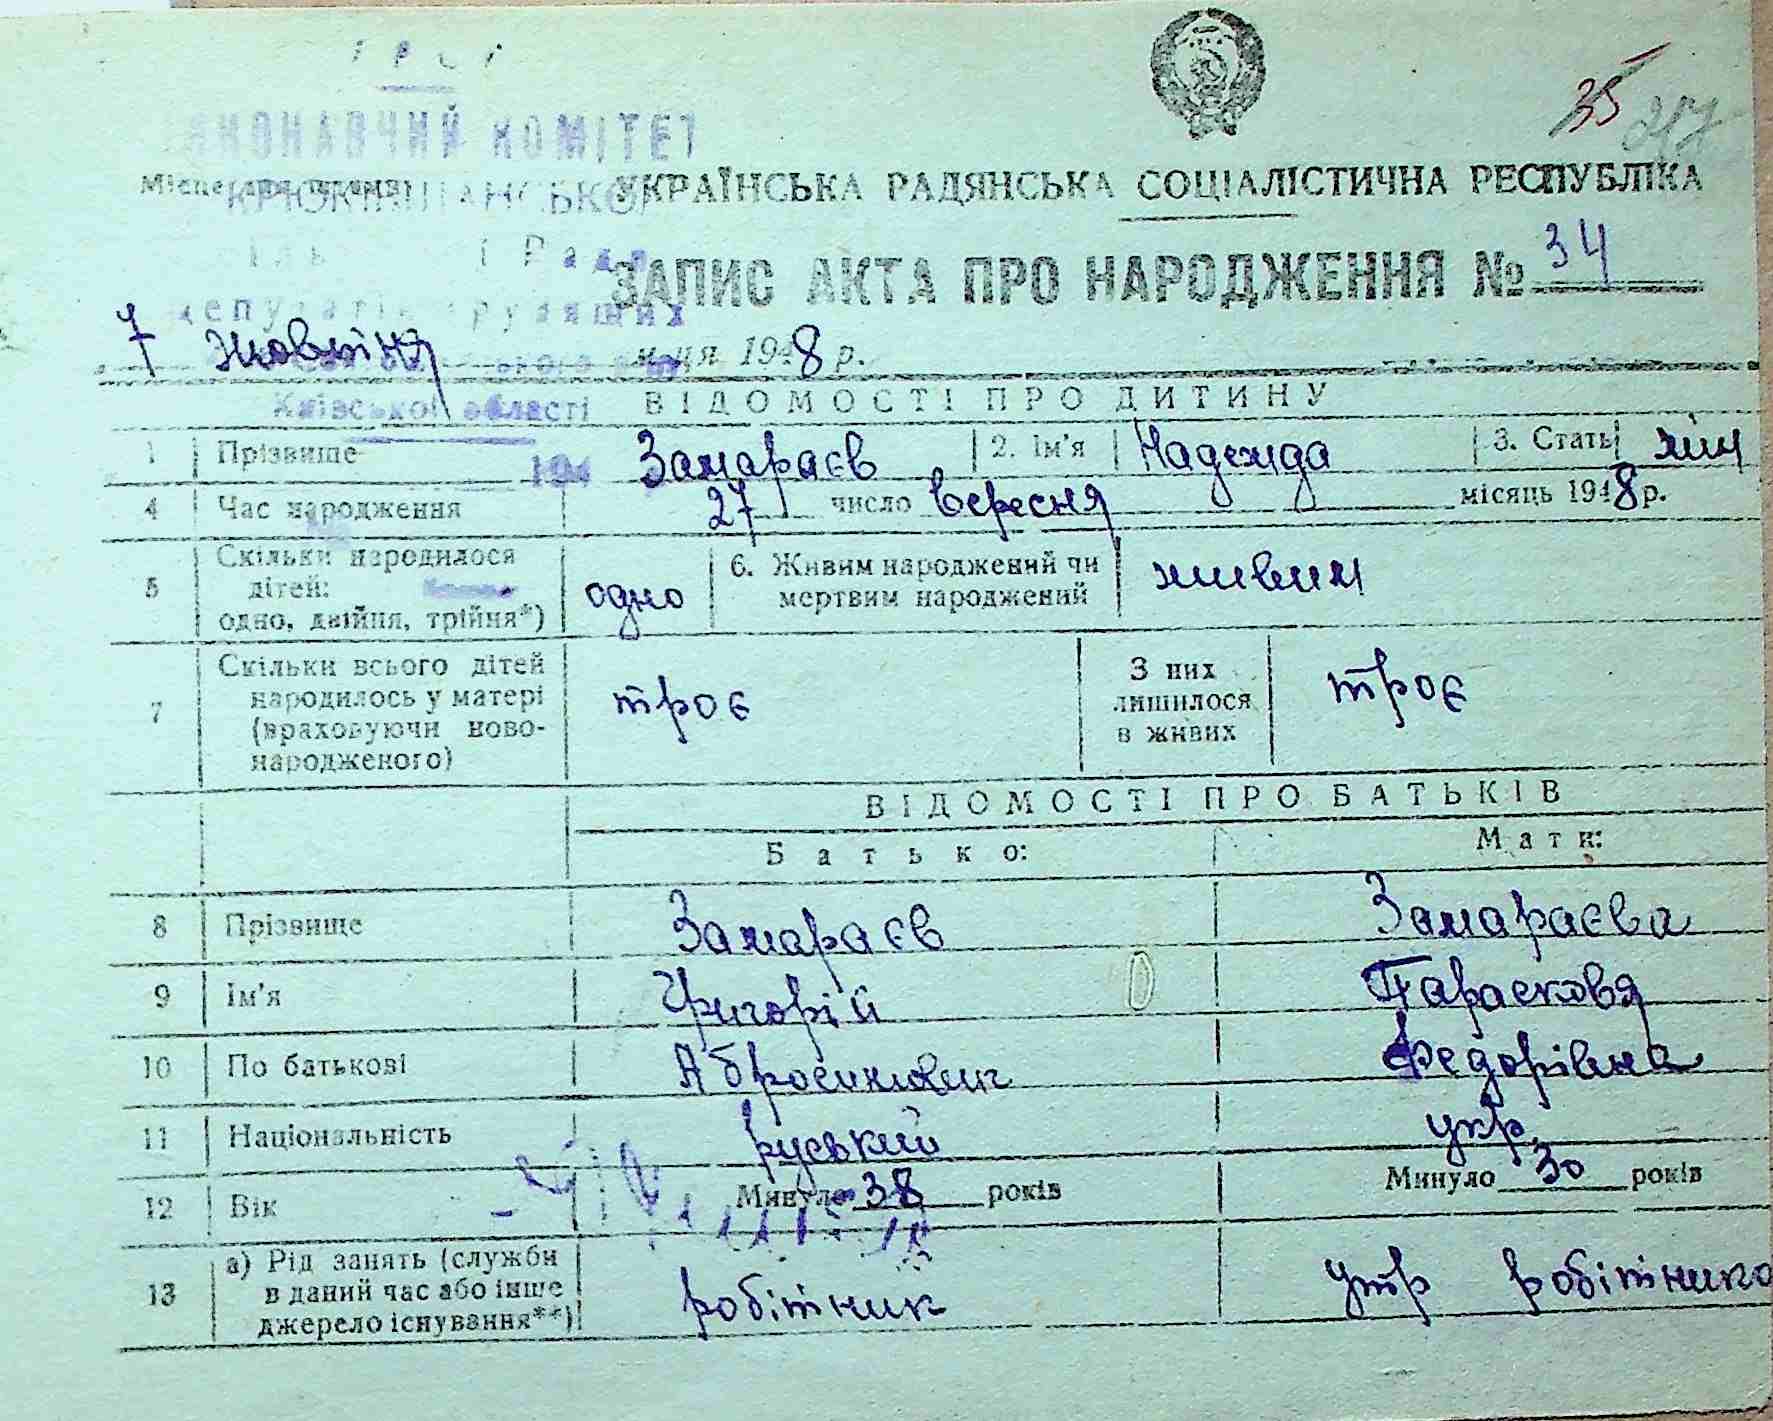 УРСР
ВИКОНАВЧИЙ КОМІТЕТ
35 217
Місце для штампу
УКРАЇНСЬКА РАДЯНСЬКА СОЦІАЛІСТИЧНА РЕСПУБЛІКА
ЗАПИС АКТА ПРО НАРОДЖЕННЯ № 34
депутатів трудящих
7 жовтня м-ця 1948 р.
Київської області
ВІДОМОСТІ ПРО ДИТИНУ
1 Прізвище Замараєв 2. Ім'я Надежда 3. Стать жін
194
4 Час народження 27 число вересня місяць 1948 р.
5 Скільки народилося дітей: одно, двійня, трійня*) одно 6. Живим народжений чи мертвим народжений живим
7 Скільки всього дітей народилось у матері (враховуючи ново-народженого) троє З них лишилося в живих троє
ВІДОМОСТІ ПРО БАТЬКІВ
Батько: Мати:
8 Прізвище Замараєв Замараєва
9 Ім'я Григорій Парасковя
10 По батькові Абросимович Федорівна
11 Національність руський укр.
12 Вік Минуло 38 років Минуло 30 років
13 а) Рід занять (служби в даний час або інше джерело існування**) робітник утр робітника